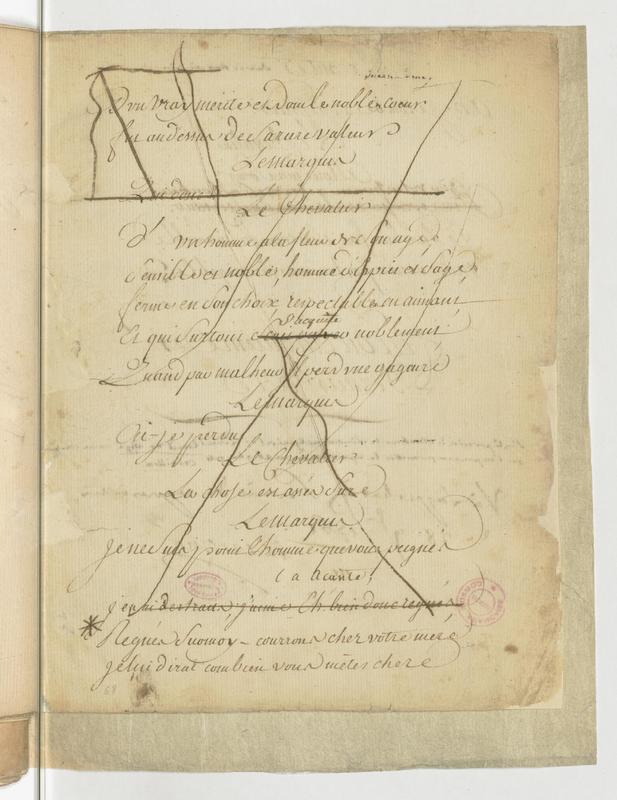 D'un vray merite et dont le noble coeur
Fut au dessus de sa rare valleur
Le Marquis
Le Chevalier
D'un homme a la fleur de son age
Gentille et noble, homme d'esprit et sage
ferme en son choix, respectable en aimant
S'acquitte
Et qui surtout noblement
Quand par malheur il perd une gageure
Le Marquis
Ai-je perdu
Le Chevalier
La chose est assés sure
Le Marquis
je ne suis point l'homme que vous peignés
(a Acante)
j'en ai des traits j'aime Eh bien donc regnés
* Regnés sur moy - courrons chez votre mere
je lui dirai combien vous m'êtes chere
68